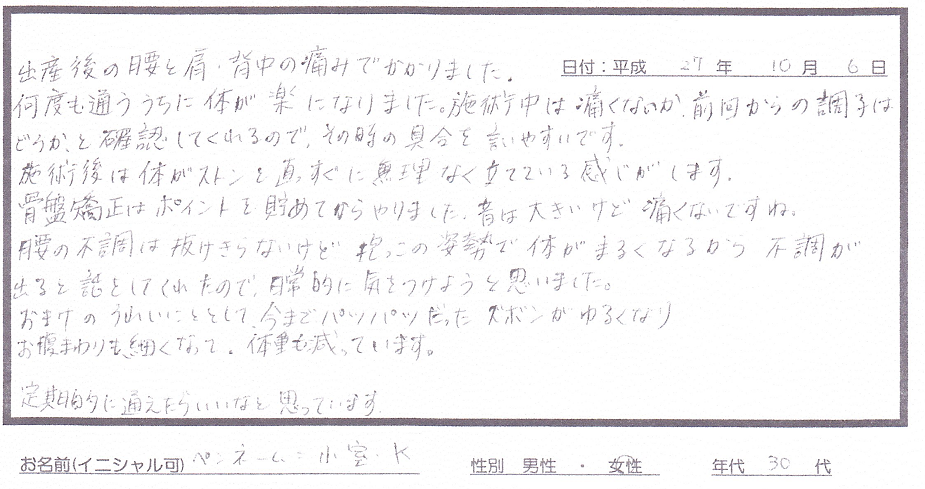 出産後の腰と肩・背中の痛みでかかりました。
日付：平成 27 年 10 月 6 日
何度も通ううちに体が楽になりました。施術中は痛くないか、前回からの調子は
どうか、と確認してくれるので、その時の具合を言いやすいです。
施術後は体がストンと真っすぐに無理なく立てている感じがします。
骨盤矯正はポイントを貯めてからやりました。音は大きいけど痛くないですね。
腰の不調は抜けきらないけど抱っこの姿勢で体がまるくなるから不調が
出ると話をしてくれたので、日常的に気をつけようと思いました。
おまけのうれしいこととして、今までパツパツだったズボンがゆるくなり
お腹まわりも細くなって、体重も減っています。
定期的に通えたらいいなと思っています。
お名前(イニシャル可) ペンネーム：小室・K 性別 男性 ・ 女性 年代 30 代